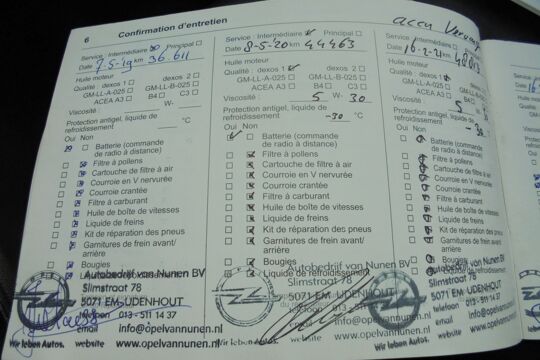 6 Confirmation d'entretien
accu
Service : Intermédiaire Principal
Date 7-5-19 km 36.611
Huile moteur
Qualité : dexos 1 dexos 2
GM-LL-A-025 GM-LL-B-025
ACEA A3 B4 C3
Viscosité : W-
Protection antigel, liquide de
refroidissement °C
Oui Non
Batterie (commande
de radio à distance)
Filtre à pollens
Cartouche de filtre à air
Courroie en V nervurée
Courroie crantée
Filtre à carburant
Huile de boîte de vitesses
Liquide de freins
Kit de réparation des pneus
Garnitures de frein avant/
arrière
Bougies
Liquide de refroidissement
Autobedrijf van Nunen BV
Slimstraat 78
5071 EM UDENHOUT
telefoon 013 - 511 14 37
email info@opelvannunen.nl
Wir leben Autos. website www.opelvannunen.nl
Service : Intermédiaire Principal
Date 8-5-20 km 44463
Huile moteur
Qualité : dexos 1 dexos 2
GM-LL-A-025 GM-LL-B-025
ACEA A3 B4 C3
Viscosité : 5 W- 30
Protection antigel, liquide de
refroidissement -30 °C
Oui Non
Batterie (commande
de radio à distance)
Filtre à pollens
Cartouche de filtre à air
Courroie en V nervurée
Courroie crantée
Filtre à carburant
Huile de boîte de vitesses
Liquide de freins
Kit de réparation des pneus
Garnitures de frein avant/
arrière
Bougies
Liquide de refroidissement
Autobedrijf van Nunen BV
Slimstraat 78
5071 EM UDENHOUT
telefoon 013 - 511 14 37
email info@opelvannunen.nl
Wir leben Autos. website www.opelvannunen.nl
Service : Intermédiaire
Date 16-2-21 km
Huile moteur
Qualité : dexos 1
GM-LL-A-025
ACEA A3 B4
Viscosité : 5
Protection antigel, liquide de
refroidissement -30
Oui Non
Batterie (commande
de radio à distance)
Filtre à pollens
Cartouche de filtre à
Courroie en V nervurée
Courroie crantée
Filtre à carburant
Huile de boîte de
Liquide de freins
Kit de réparation des
Garnitures de frein
arrière
Bougies
Liquide de
Autobedrijf van
Slimstraat 78
5071 EM UDENHOUT
telefoon 013 - 511
email info@opelvannunen
website www.opelvan